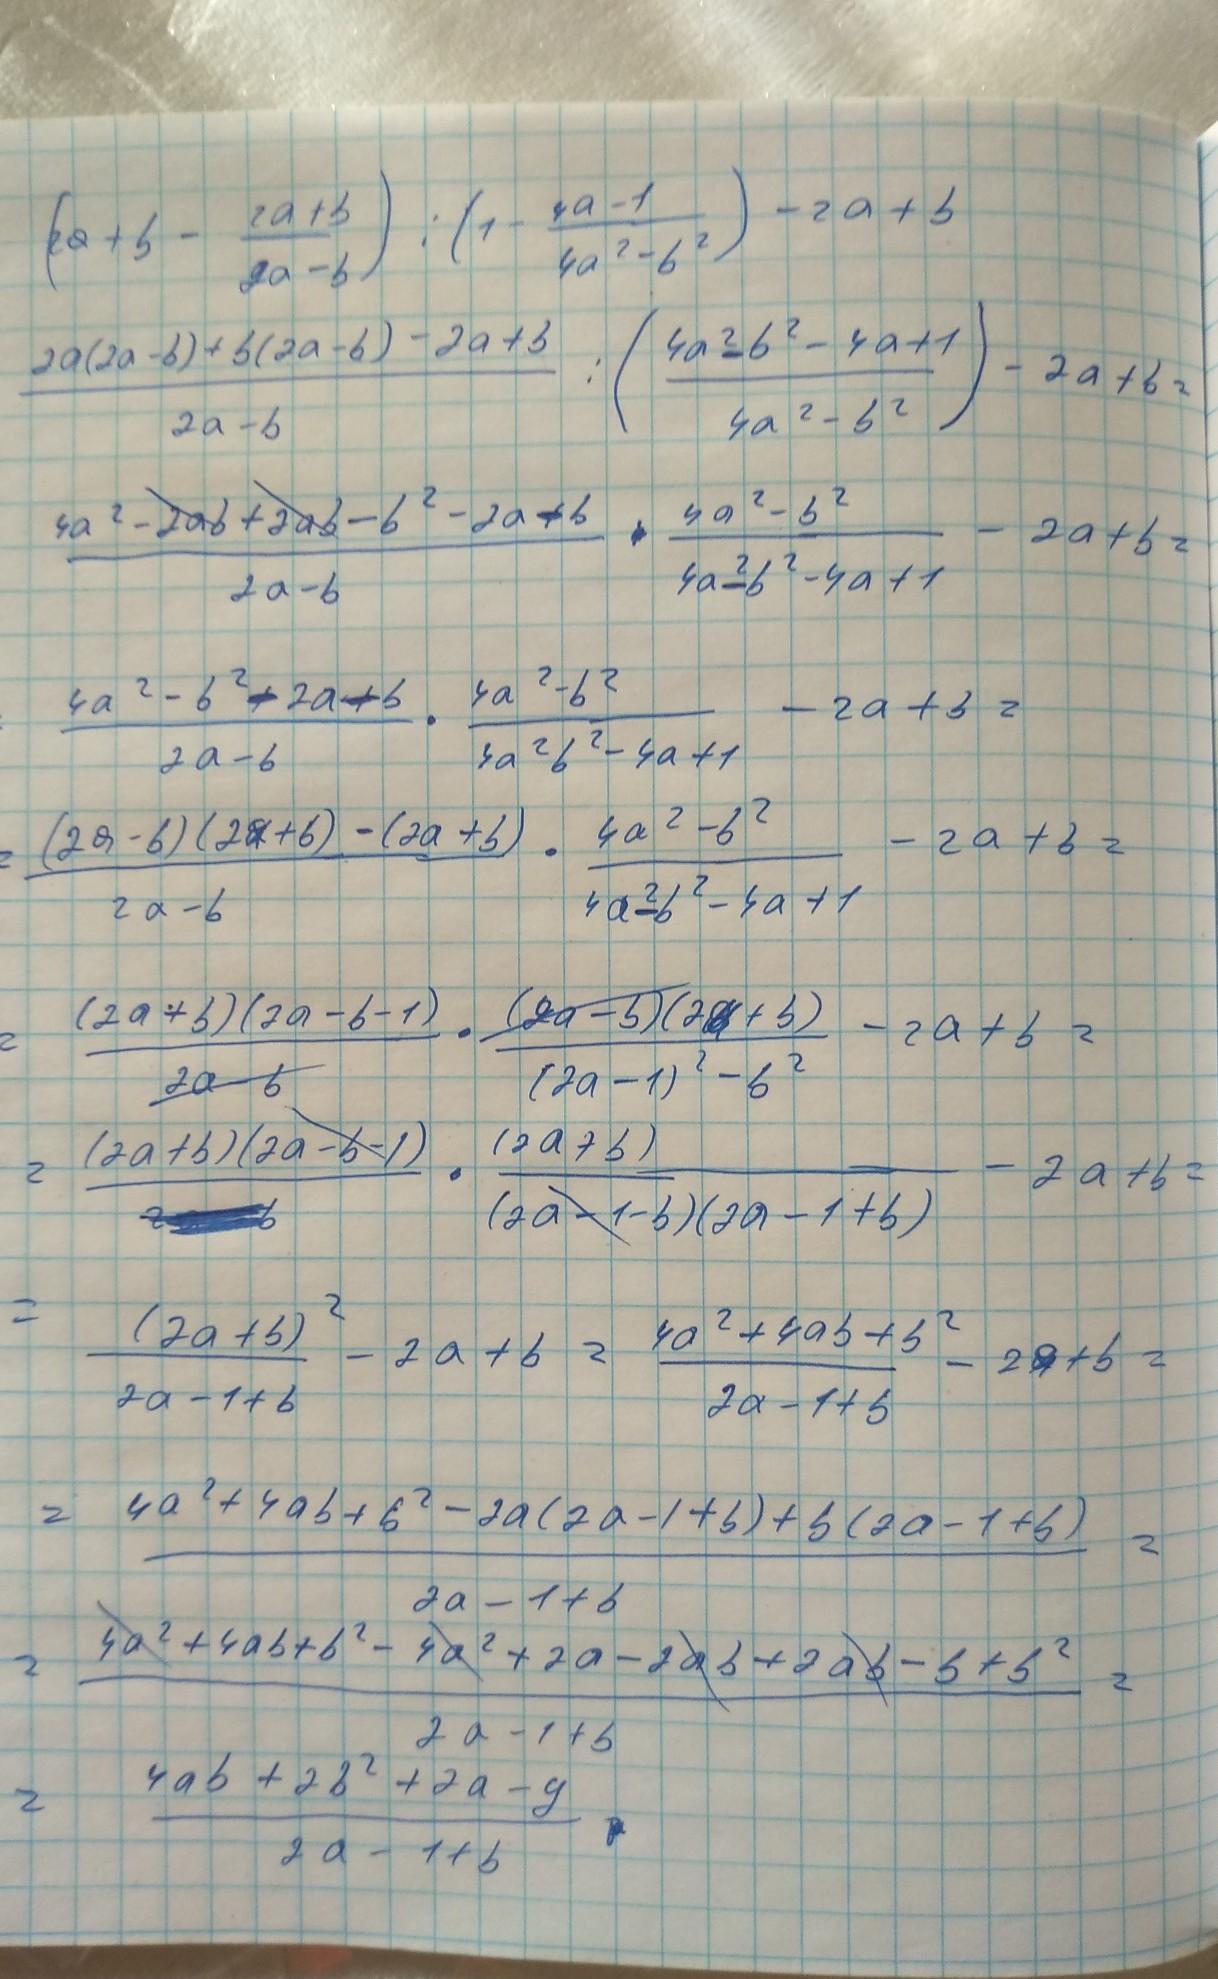 (2a + b - (2a + b)/(2a - b)) : (1 - (4a - 1)/(4a² - b²)) - 2a + b
(2a(2a - b) + b(2a - b) - 2a + b)/(2a - b) : ((4a² - b² - 4a + 1)/(4a² - b²)) - 2a + b =
(4a² - 2ab + 2ab - b² - 2a - b)/(2a - b) · (4a² - b²)/(4a² - b² - 4a + 1) - 2a + b =
= (4a² - b² - 2a - b)/(2a - b) · (4a² - b²)/(4a² b² - 4a + 1) - 2a + b =
= ((2a - b)(2a + b) - (2a + b))/(2a - b) · (4a² - b²)/(4a² - b² - 4a + 1) - 2a + b =
= ((2a + b)(2a - b - 1))/(2a - b) · ((2a - b)(2a + b))/((2a - 1)² - b²) - 2a + b =
= (2a + b)(2a - b - 1) · (2a + b)/((2a - 1 - b)(2a - 1 + b)) - 2a + b =
= (2a + b)²/(2a - 1 + b) - 2a + b = (4a² + 4ab + b²)/(2a - 1 + b) - 2a + b =
= (4a² + 4ab + b² - 2a(2a - 1 + b) + b(2a - 1 + b))/(2a - 1 + b) =
= (4a² + 4ab + b² - 4a² + 2a - 2ab + 2ab - b + b²)/(2a - 1 + b) =
= (4ab + 2b² + 2a - y)/(2a - 1 + b).